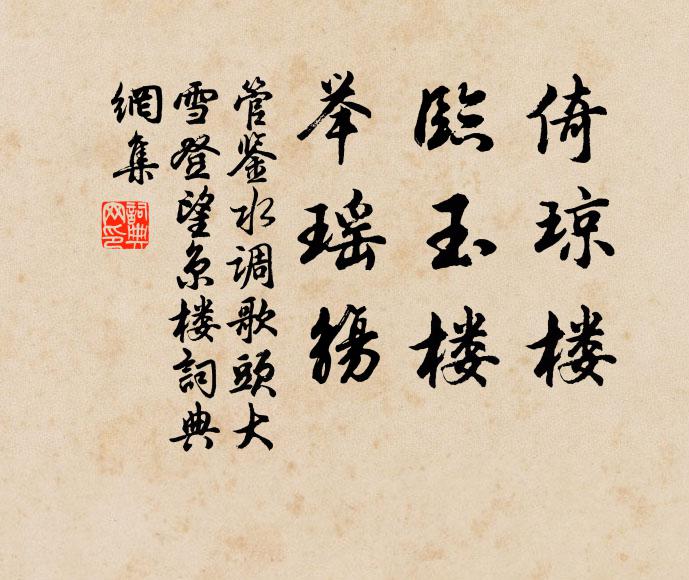 倚琼楼
临玉楼
举瑶觞
管鉴水调歌头大
雪登望京楼词典
網集
詞典
网印